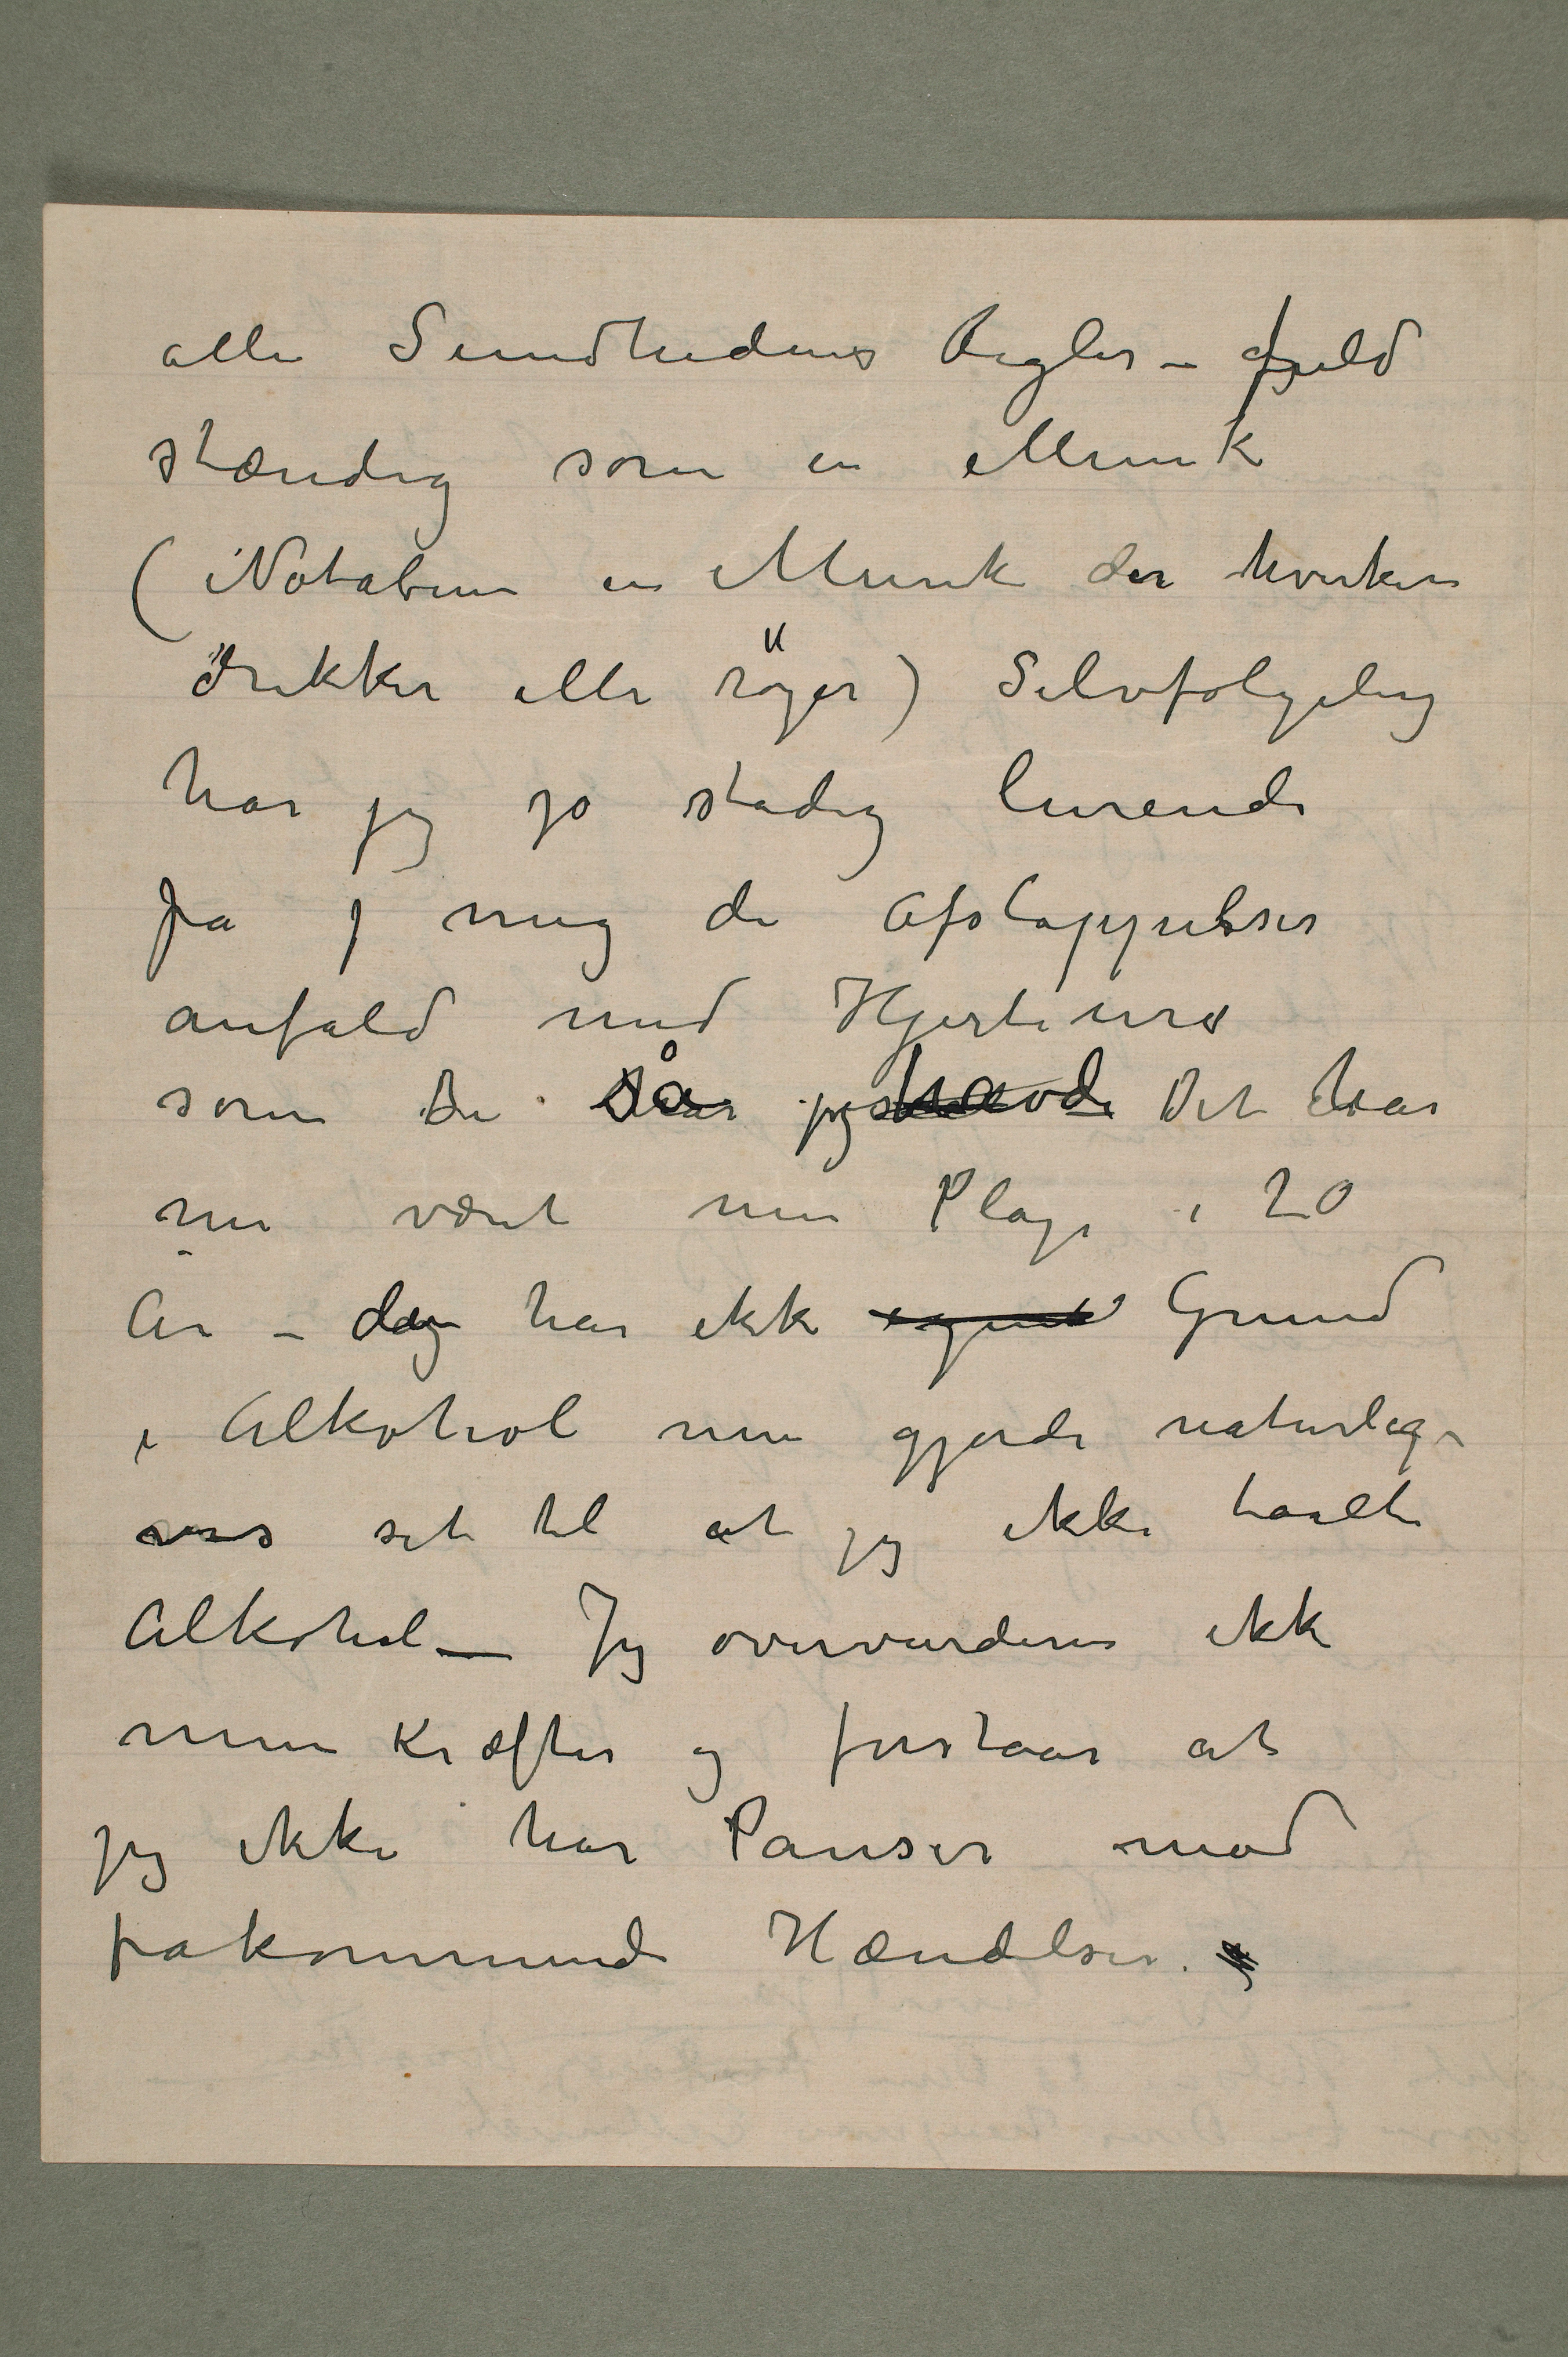 alle Sundhedens Regler – fuld
stændig som en Munk
(Notabene en Munk der hverken
drikker eller röger) Selvfølgelig
har jeg jo stadig lurende
på mig de Afslappelses
anfald med Hjerteuro
som De så jeg havde Det har
nu været min Plage i 20
År – har ikke egent Grund
i Alkohol men gjorde naturlig-
vis sit til at jeg ikke taalte
Alkohol – Jeg overvurderer ikke
mine Kræfter og forstaar at
jeg ikke har Panser mod
påkommende Hændelser.